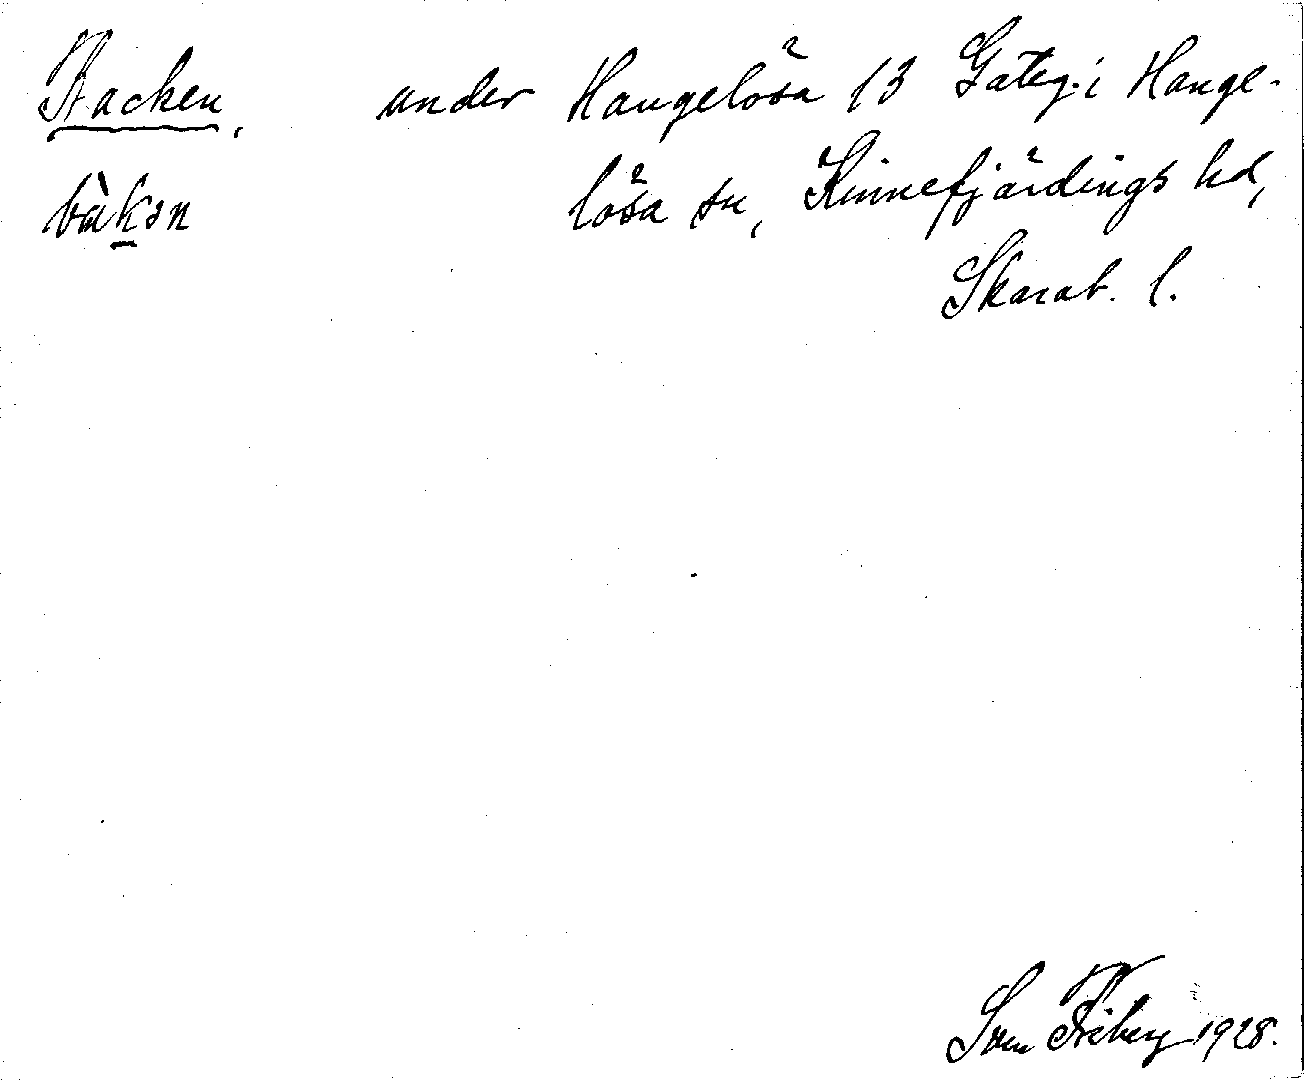 Backen, under Hangelösa 13 Gateg. i Hange-
bàkən lösa sn, Kinnefjärdings hd,
Skarab. l.
Sven Friberg 1928.